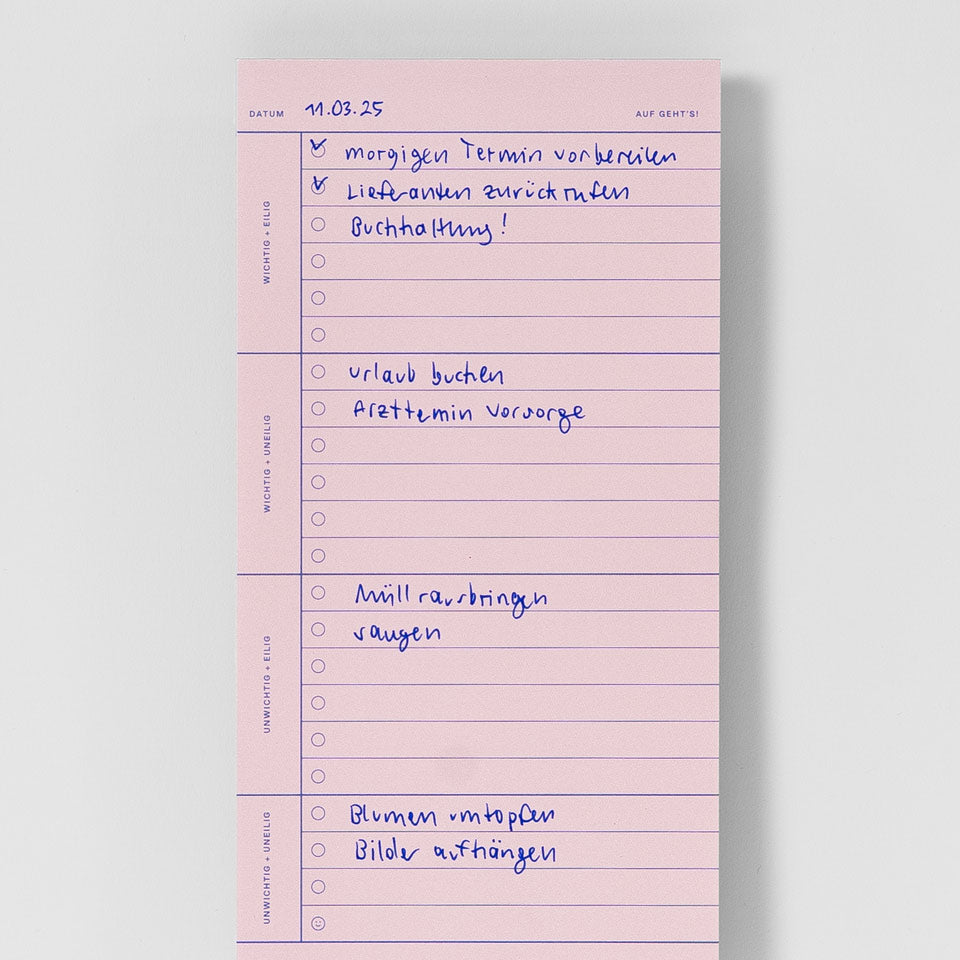 DATUM 11.03.25 AUF GEHT'S!
WICHTIG + EILIG
morgigen Termin vorbereiten
Lieferanten zurückrufen
Buchhaltung!
WICHTIG + UNEILIG
urlaub buchen
Arzttemin vorsorge
UNWICHTIG + EILIG
Müll rausbringen
saugen
UNWICHTIG + UNEILIG
Blumen umtopfen
Bilder aufhängen